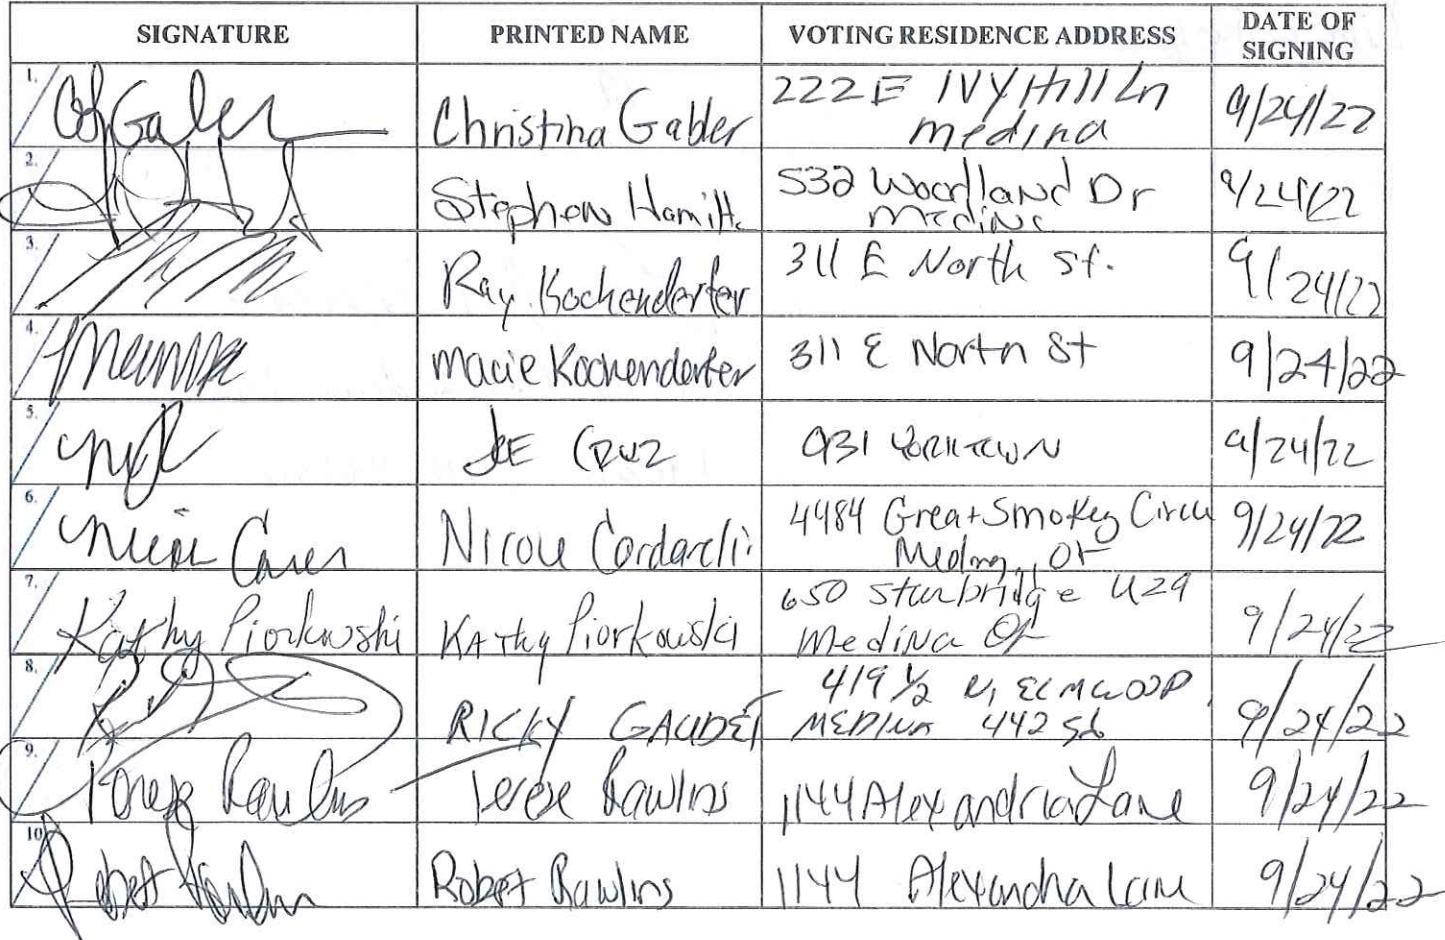 SIGNATURE PRINTED NAME VOTING RESIDENCE ADDRESS DATE OF SIGNING
1. Christina Gabler 222 E IVY Hill Ln 9/24/22
medina
2. Stephen Hamilt 532 Woodland Dr 9/24/22
Medina
3. Ray Kochenderfer 311 E North St. 9/24/22
4. Macie Kochenderfer 311 E North St 9/24/22
5. JOE CRUZ 931 YORKTOWN 9/24/22
6. Nicole Cordarelli 4484 Great Smokey Circle 9/24/22
Medina, OH
7. Kathy Piorkowski KAThy Piorkowski 650 Sturbridge U29 9/24/22
Medina OH
8. RICKY GAUDET 419 1/2 N, ELMWOOD 9/24/22
MEDINA 44256
9. Terese Rawlins Terese Rawlins 1144 Alexandria Lane 9/24/22
10. Robert Rawlins Robert Rawlins 1144 Alexandria Lane 9/24/22